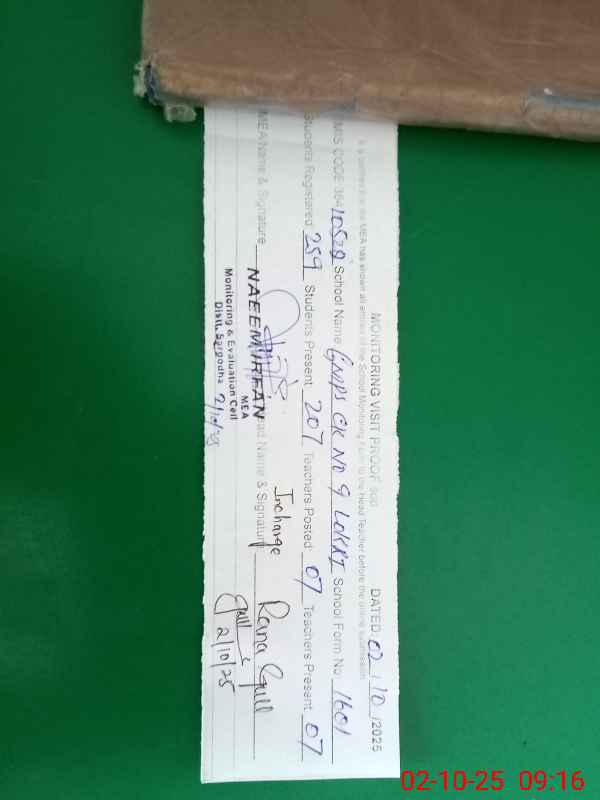 MONITORING VISIT PROOF SED DATED: 02 / 10 /2025
It is confirmed that the MEA has shown all entries of the School Monitoring Form to the Head Teacher before the online submission
EMIS CODE 384 10529 School Name GMPS CK NO 9 LOKRI School Form No. 1601
Students Registered 259 Students Present 207 Teachers Posted: 07 Teachers Present 07
MEA Name & Signature Head Name & Signature Incharge Rana Gull
NAEEM IRFAN
MEA
Monitoring & Evaluation Cell
Distt. Sargodha 2/10/25
Gull
2/10/25
02-10-25 09:16